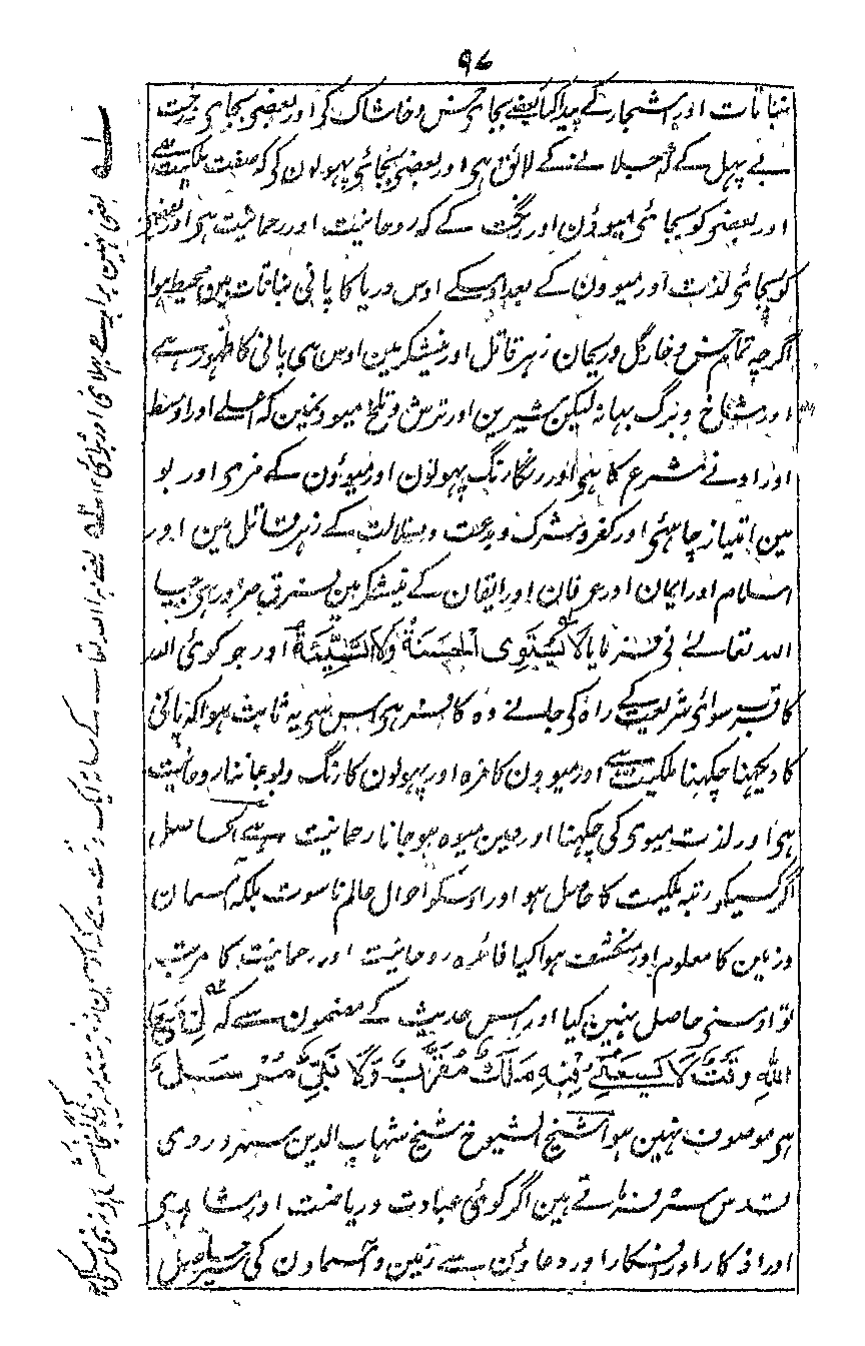 ۹۷
نباتات اور اشجار کے پیدا کیا بعضے بجائی خس و خاشاک کو اور بعضی بجائی درخت
بے پہل کے کہ جلانے کے لائق ہی اور بعضی بجائی پہولون کو کہ صفت ملکیت ہے
اور بعضی کو بجائی میوؤن اور رنگت کے کہ روحانیت اور رحمانیت ہی اور بعضی
کو بجائی لذت اور میوون کے بعد اوسکے اوس دریا کا پانی نباتات مین محیط ہوا
اگرچہ تمام خس و خار گل و ریحان زہر قاتل اور نیشکر مین اوس ہی پانی کا ظہور ہے
اور شاخ و برگ بہانہ لیکن شیرین اور ترش و تلخ میوؤنمین کہ اعلے اور اوسط
اور ادنے شرع کا ہی اور رنگارنگ پہولون اور میوؤن کے مزی اور بو
مین امتیاز چاہئی اور کفر و شرک و بدعت و ضلالت کے زہر قاتل مین اور
اسلام اور ایمان اور عرفان اور ایقان کے نیشکر مین فرق ضرور ہی جیسا
اللہ تعالے نی فرمایا لَا تَسْتَوِی الْحَسَنَةُ وَلَا السَّیِّئَةُ اور جو کوئی اللہ
کا قرب سوائی شریعت کے راہ کی جانے وہ کافر ہی اس سی یہ ثابت ہوا کہ پانی
کا دیکھنا چکہنا ملکیت ہے اور میوون کا مزہ اور پہولون کا رنگ و بو جاننا روحانیت
ہی اور لذت میوی کی چکہنا اور عین میوہ ہو جانا رحمانیت ہے الحاصل
اگر کسیکو رتبہ ملکیت کا حاصل ہو اور اوسکو احوال عالم ناسوت بلکہ آسمان
و زمین کا معلوم اور منکشف ہوا کیا فائدہ روحانیت اور رحمانیت کا مرتبہ
تو اوسنی حاصل نہین کیا اور اس حدیث کے مضمون سے کہ لِیْ مَعَ
اللهِ وَقْتٌ لَا یَسَعُنِیْ فِیْهِ مَلَكٌ مُقَرَّبٌ وَلَا نَبِیٌّ مُرْسَلٌ
ہی موصوف نہین ہوا شیخ الشیوخ شیخ شہاب الدین سہروردی
قدس سرہ فرماتے ہین اگر کوئی عبادت و ریاضت اور
اور اذکار اور افکار اور دعاؤن سے زمین و آسمانون کی سیر حاصل
لے یعنی نہین برابر ہے بہلائی اور برائی ۱۲ لے یعنے میرا اللہ تعالے کے ساتہ ایک وقت ہے کہ